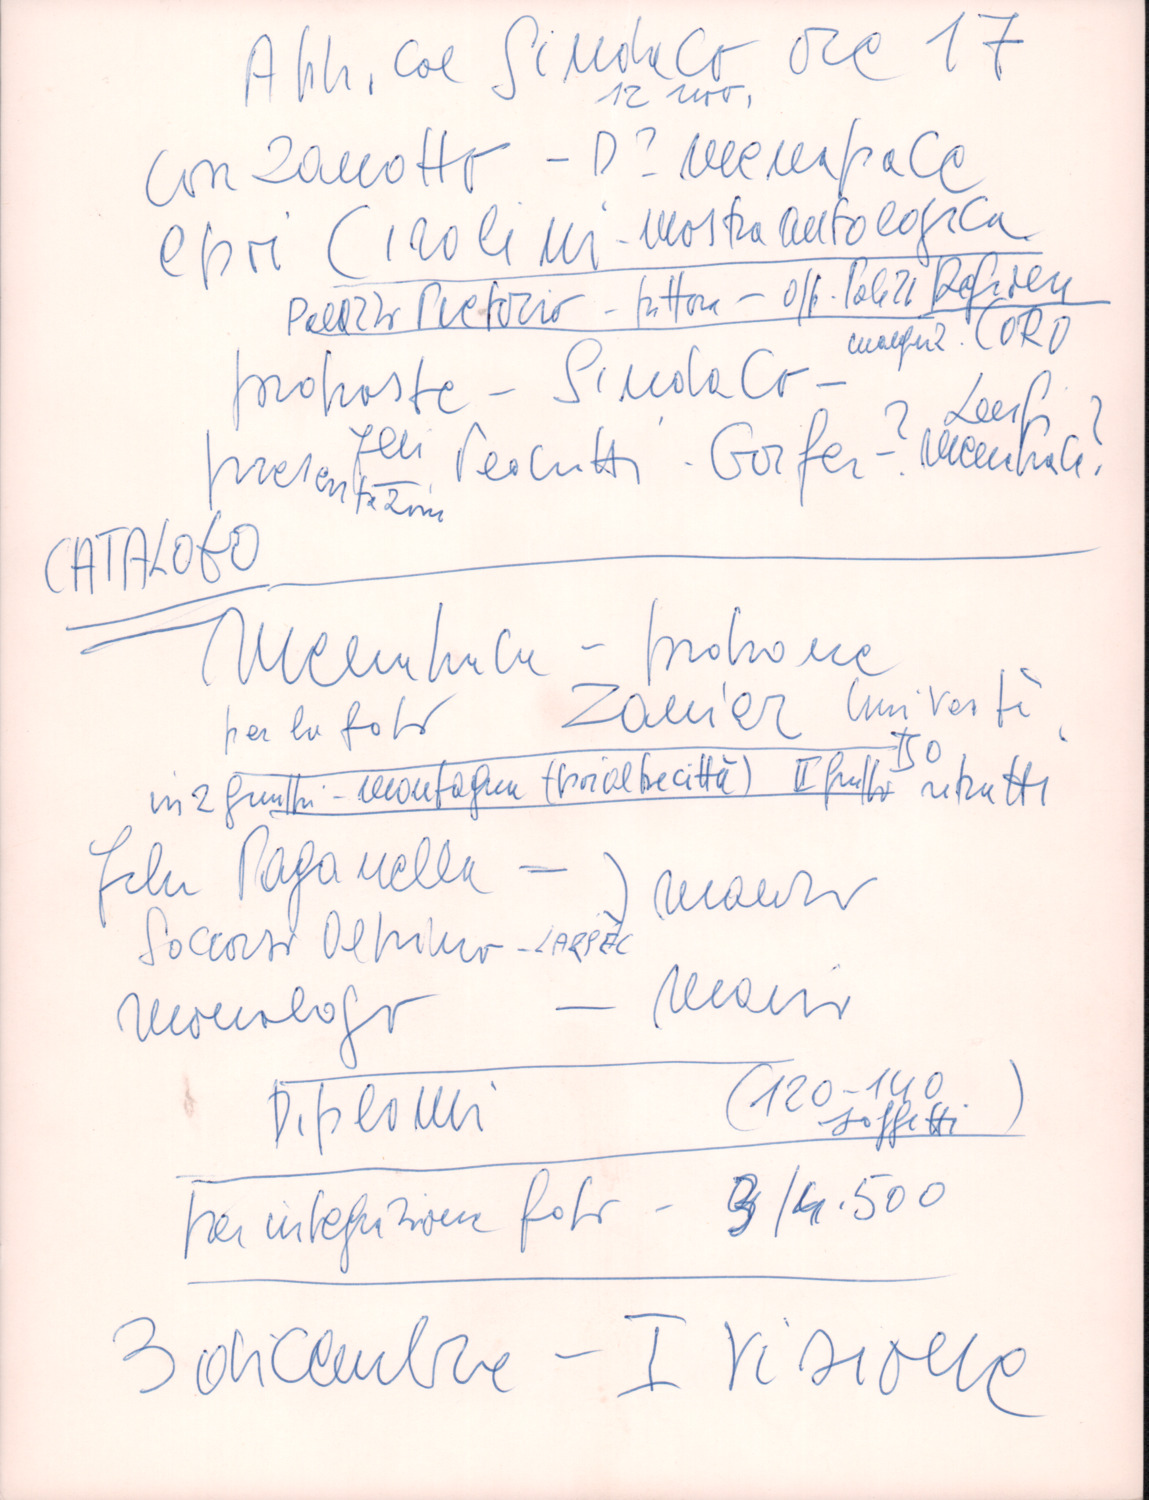 App. col Sindaco ore 17
12 nov.
con Zanotto - D? Menapace
e poi Cirolini - mostra antologica
Palazzo Pretorio - pittora - opp. Palazz Regione
CORO
proposte - Sindaco -
presentazioni Pedrotti - Gorfer - ? Menapace?
CATALOGO
Menapace - propone
per le foto Zanier Università
in 2 gruppi - montagna (poi altre città) II gruppo 50 ritratti
Film Paganella - ) Mauro
Soccorso Alpino - LARSEC
Monologo - Mauro
Diplomi (120-140 soggetti)
per integrazione foto - 3/4.500
3 dicembre - I Visione